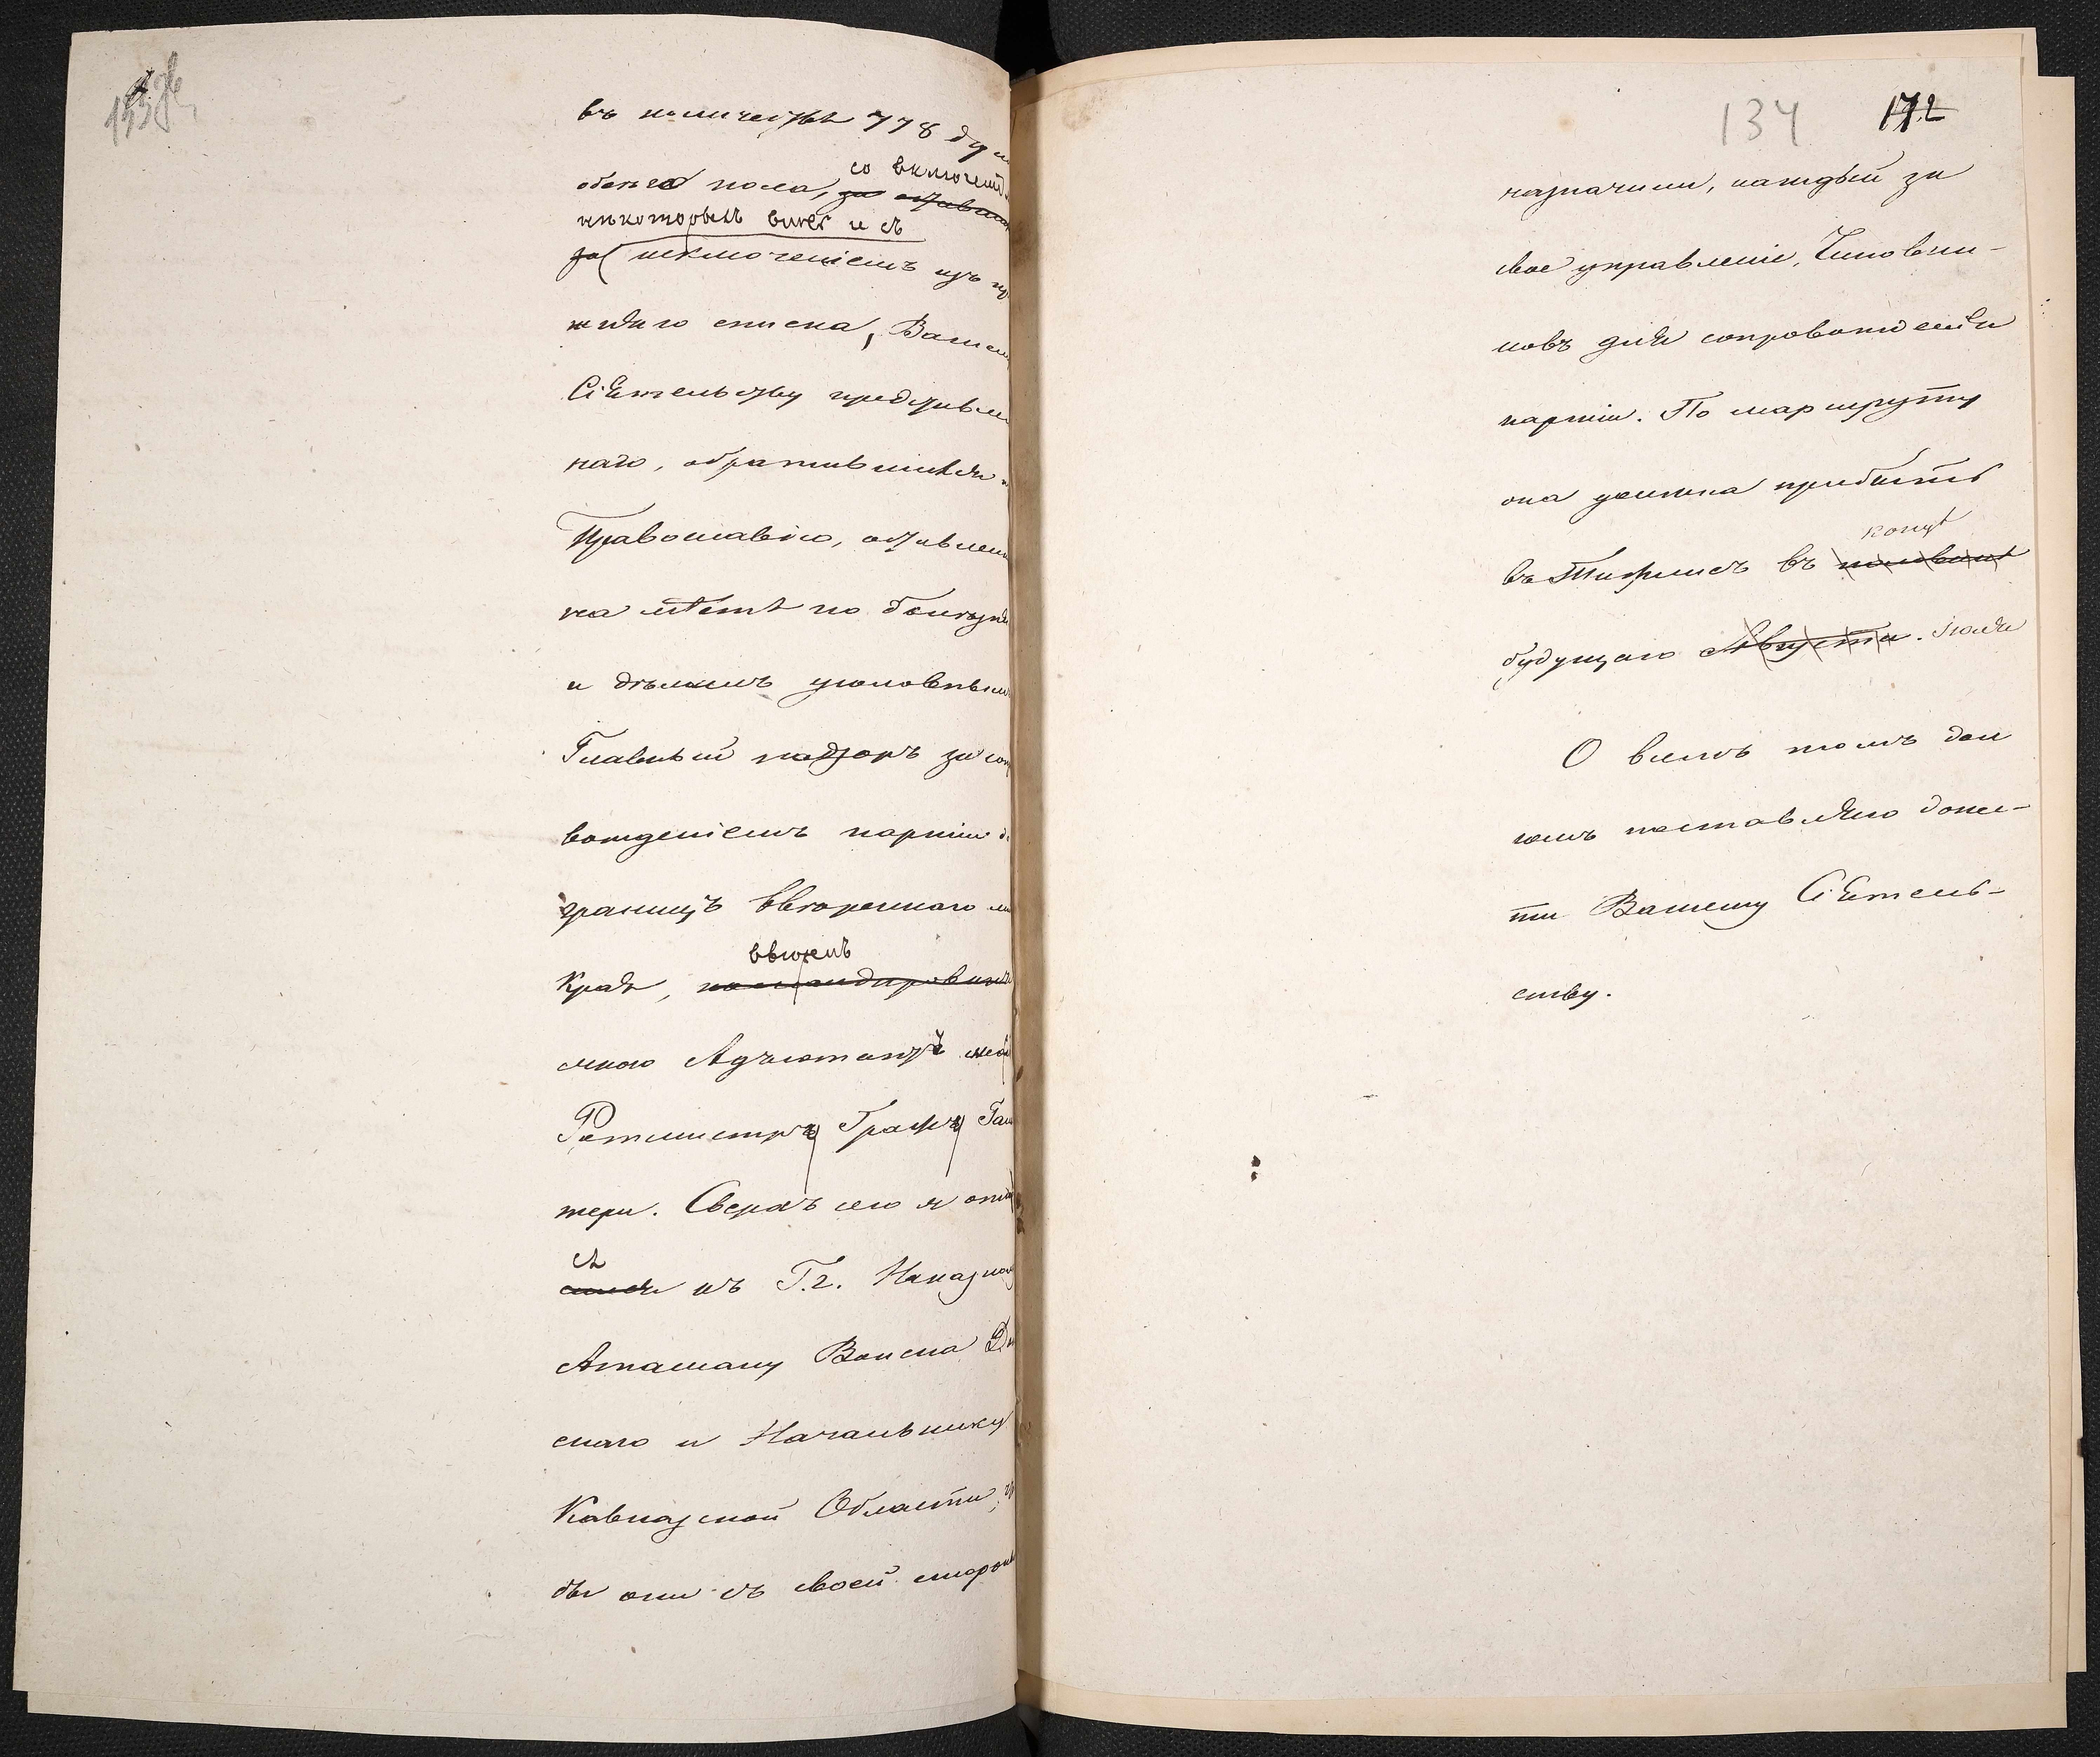 въ количествѣ 778 ду
обоего пола, со включен
нѣкоторыхъ вновь и съ
исключеніемъ изъ
жняго списка, Ваше
Сіятельству представлен
наго, обратившихся
Православію, оставлен
на мѣстѣ по болѣзн
и дѣламъ уголовны
Главный надзоръ за соп
вожденіемъ партіи д
границъ ввѣреннаго м
Края, ввѣренъ
мною Адъютанту мо
Ротмистру Графу Га
тери. Сверхъ сего я отн
ся къ Г.г. Наказно
Атаману Войска Д
скаго и Начальнику
Кавказской Области, ч
бы они съ своей сторон
134 172
назначили, каждый за
свое управленіе, Чиновни-
ковъ для сопровожденія
партіи. По маршруту
она должна прибыть
въ Тифлисъ въ концѣ
будущаго Іюля
О всемъ томъ дол
гомъ поставляю донес-
ти Вашему Сіятель-
ству.